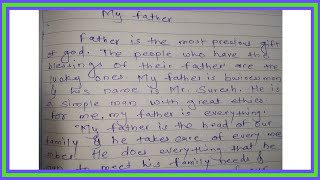 My father
Father is the most precious gift
of god. The people who have the
blessings of their father are the
lucky ones. My father is businessman
& his name is Mr. Suresh. He is
a simple man with great ethics
for me, my father is everything.
"My father is the head of our
family & he takes care of every me
mber. He does everything that he
can to meet his family needs &